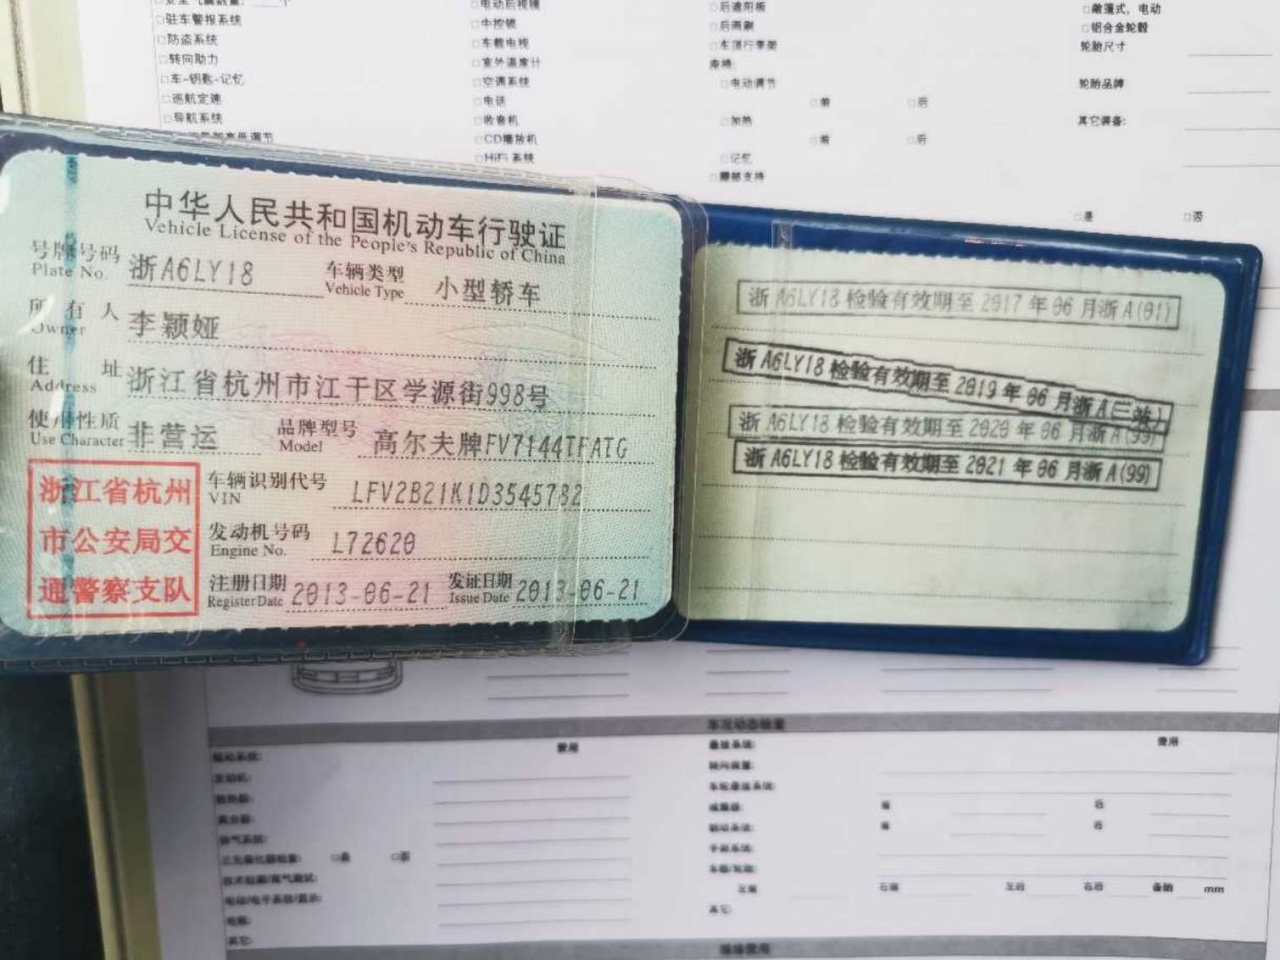 □驻车警报系统
□防盗系统
□转向助力
□车-钥匙-记忆
□巡航定速
□导航系统
□电动后视镜
□中控锁
□车载电视
□室外温度计
□空调系统
□电话
□收音机
□CD播放机
□HiFi 系统
□后遮阳板
□后雨刷
□车顶行李架
座椅:
□电动调节
□前 □后
□加热
□前 □后
□记忆
□腰部支持
□敞篷式, 电动
□铝合金轮毂
轮胎尺寸
轮胎品牌
其它装备:
□是 □否
中华人民共和国机动车行驶证
Vehicle License of the People's Republic of China
号牌号码 浙A6LY18 车辆类型 小型轿车
Plate No. Vehicle Type
所有人 李颖娅
Owner
住址 浙江省杭州市江干区学源街998号
Address
使用性质 非营运 品牌型号 高尔夫牌FV7144TFATG
Use Character Model
浙江省杭州
市公安局交
通警察支队
车辆识别代号 LFV2B21K1D3545782
VIN
发动机号码 L72620
Engine No.
注册日期 2013-06-21 发证日期 2013-06-21
Register Date Issue Date
浙A6LY18 检验有效期至 2017 年 06 月浙A(01)
浙A6LY18 检验有效期至 2019 年 06 月浙A
浙A6LY18 检验有效期至 2020 年 06 月浙A(99)
浙A6LY18 检验有效期至 2021 年 06 月浙A(99)
车况动态检查
费用
费用
发动机:
排气系统:
□是 □否
电动/电子系统/显示:
电瓶:
其它:
转向装置:
减震器: 前 后
制动系统: 前 后
右前 左后 右后 备胎 mm
其它:
维修费用